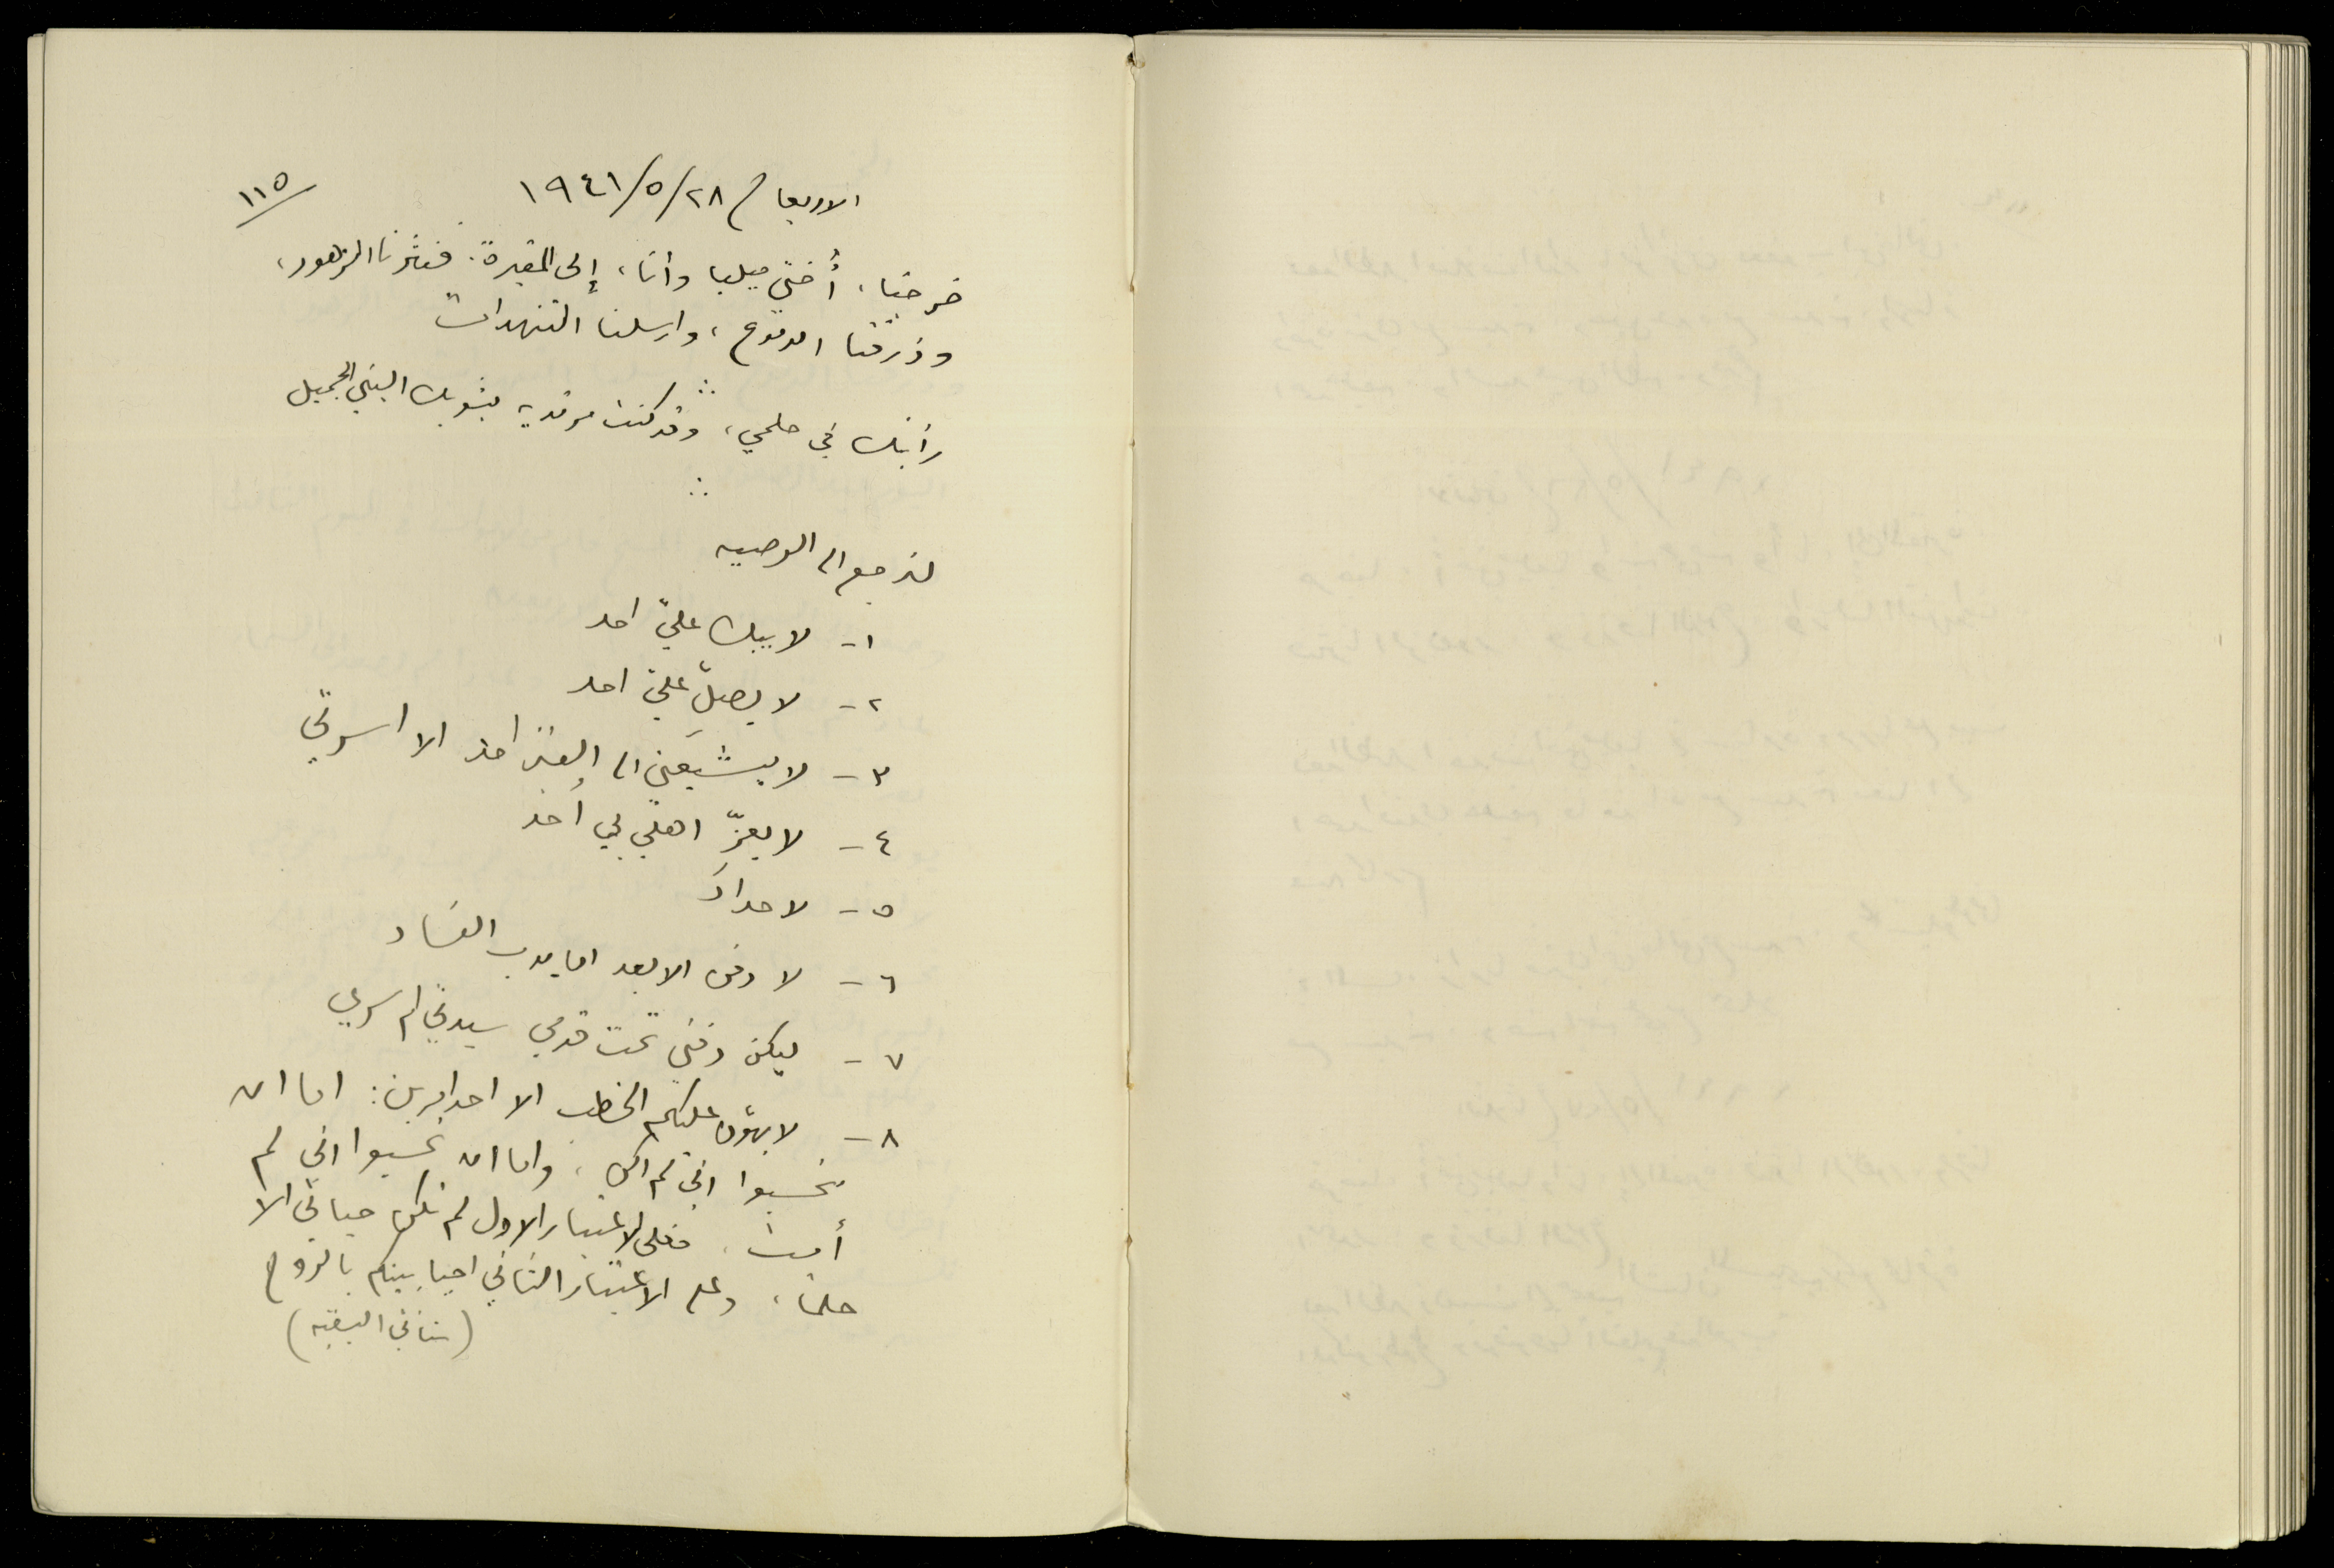 ١١٥
الاربعاء ٢٨/٥/١٩٤١
خرجنا، أُختي ميليا وأنا، إلى المقبرة. فنثرنا الزهور،
وذرفنا الدموع، وارسلنا التنهدات
∴
رأيتك في حلمي، وقد كنت مرتدية بثوبك البني الجميل
∴
لنرجع الى الوصيه
١- لا يبك عليّ احد
٢- لا يصلِّ عليّ احد
٣- لا يشيعني الى القبر احد الا اسرتي
٤- لا يعزّ اهلي بي احد
٥- لا حداد
٦- لا دفن الا بعد اما يدب الفساد
٧- ليكن دفني تحت قدمي سيدتي ام سري
٨- لا يهوّن عليكم الخطب الا احد امرين: اما ان
تحسبوا اني لم اكن، واما ان تحسبوا اني لم
أمت. فعلى الاعتبار الاول لم تكن حياتي الا
حلماً، وعلى الاعتبار الثاني احيا بينكم بالروح
(ستاتي البقية)